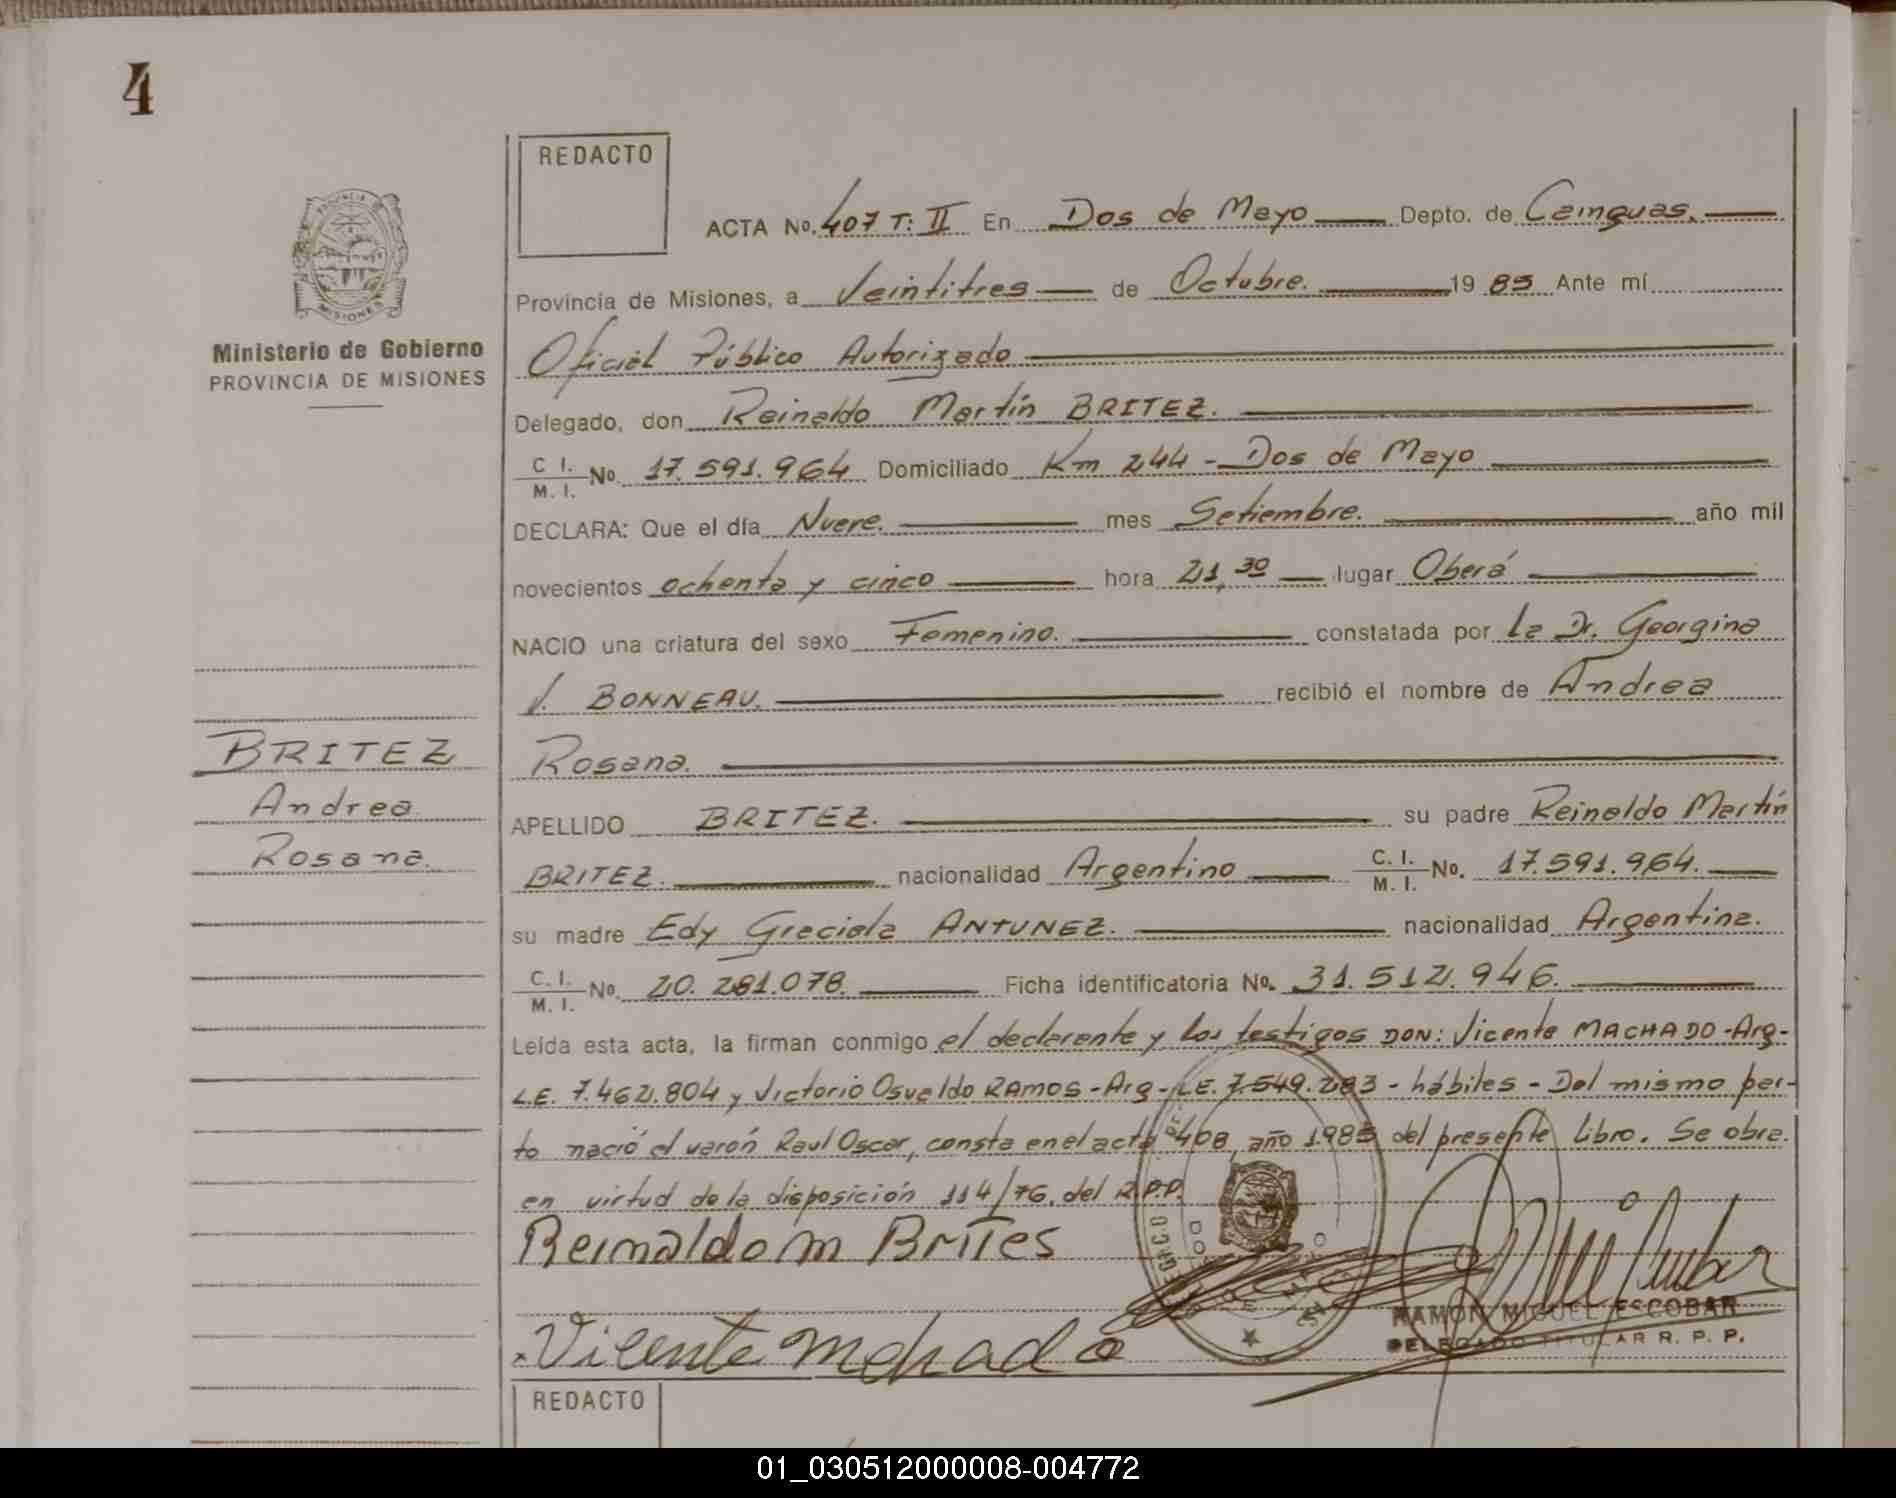 4
REDACTO
ACTA No. 407 T: II En Dos de Mayo Depto. de Cainguas.
Provincia de Misiones, a Veintitres de Octubre. 19 85 Ante mí
Oficial Público Autorizado
Ministerio de Gobierno
PROVINCIA DE MISIONES
Delegado, don Reinaldo Martín BRITEZ.
C. I. / M. I. No. 17.591.964 Domiciliado Km 244 - Dos de Mayo
DECLARA: Que el día Nueve. mes Setiembre. año mil
novecientos ochenta y cinco hora 21,30 lugar Oberá
NACIO una criatura del sexo Femenino. constatada por la Dr. Georgina
J. BONNEAU. recibió el nombre de Andrea
Rosana.
BRITEZ
Andrea
Rosana.
APELLIDO BRITEZ. su padre Reinaldo Martín
BRITEZ. nacionalidad Argentino C. I. / M. I. No. 17.591.964.
su madre Edy Graciela ANTUNEZ. nacionalidad Argentina.
C. I. / M. I. No. 20.281.078. Ficha identificatoria No. 31.512.946.
Leída esta acta, la firman conmigo el declarante y los testigos DON: Vicente MACHADO - Arg-
L.E. 7.462.804 y Victorio Osvaldo RAMOS - Arg - L.E. 7.549.283 - hábiles - Del mismo par-
to nació el varón Raul Oscar, consta en el acta 408, año 1985 del presente libro. Se obra.
en virtud de la disposición 114/76. del R.P.P.
Reinaldo m Brites
Vicente Mchado
RAMON MIGUEL ESCOBAR
DELEGADO TITULAR R. P. P.
REDACTO
01_030512000008-004772